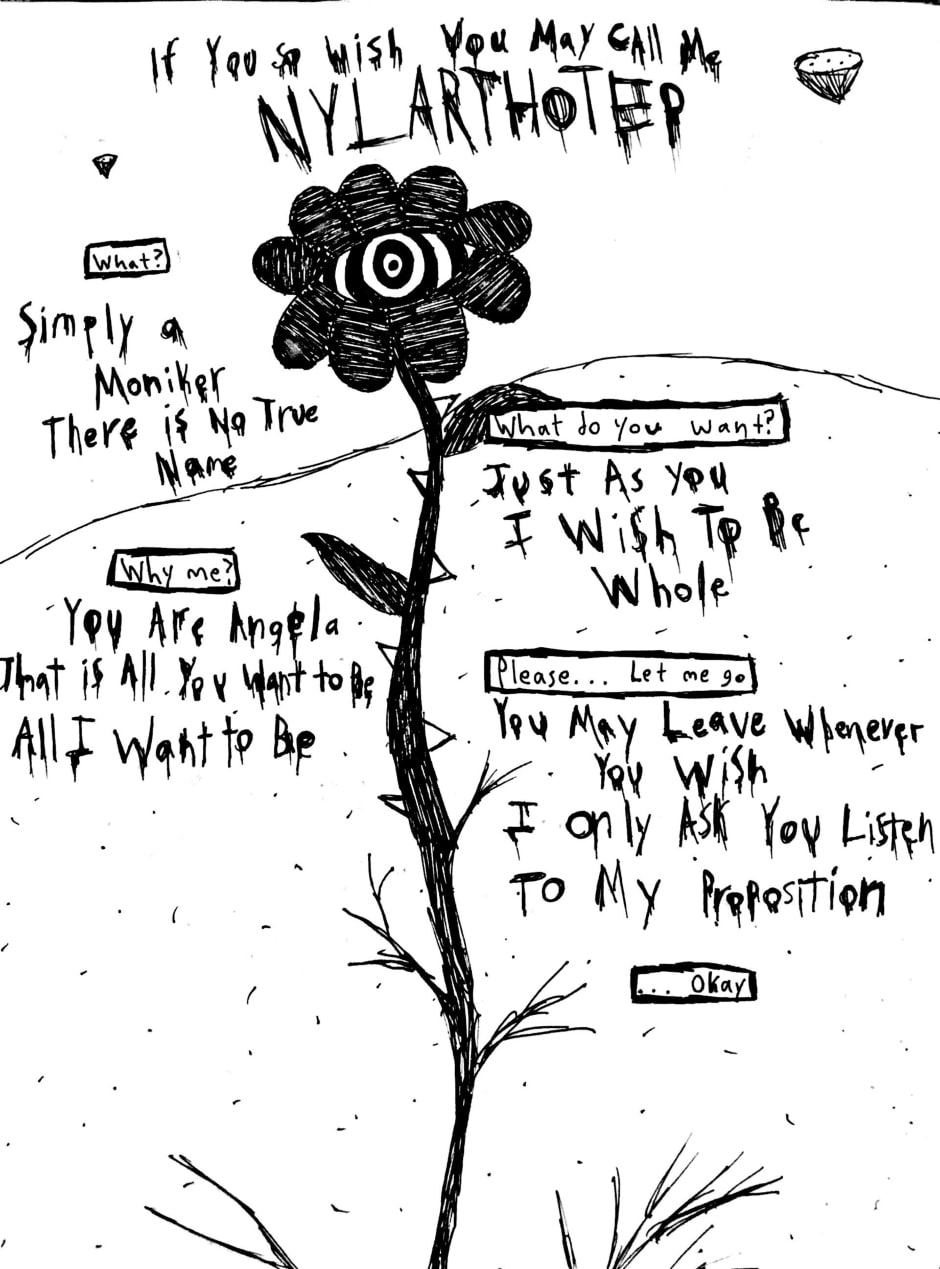 If You so wish You May CAll Me
NYLARTHOTEP
What?
Simply a
Moniker
There is No True
Name
What do you want?
Just As You
I Wish To Be
Whole
Why me?
You Are Angela
That is All You Want to Be
All I Want to Be
Please... Let me go
You May Leave Whenever
You Wish
I only Ask You Listen
To My Proposition
... Okay